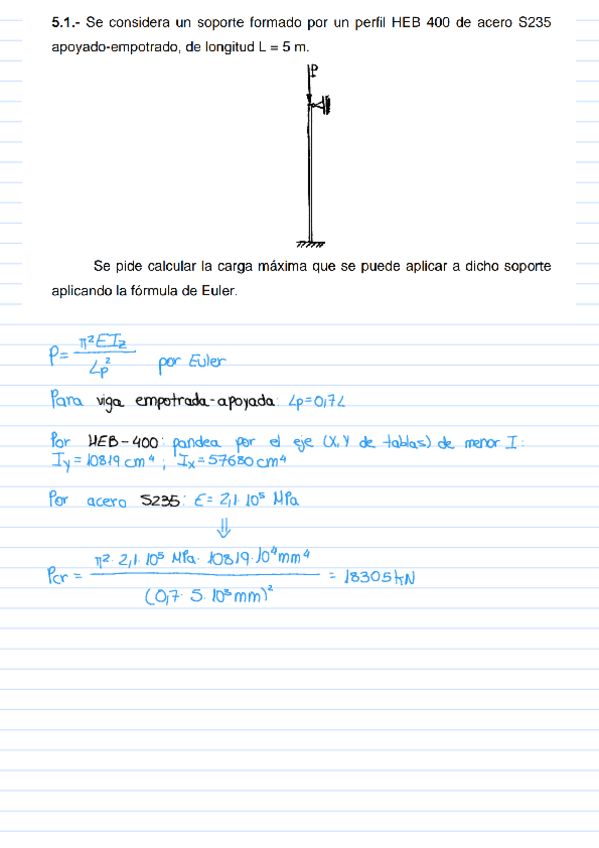 5.1.- Se considera un soporte formado por un perfil HEB 400 de acero S235
apoyado-empotrado, de longitud L = 5 m.
P
Se pide calcular la carga máxima que se puede aplicar a dicho soporte
aplicando la fórmula de Euler.
P = π²EI₂ / Lp² por Euler
Para viga empotrada-apoyada: Lp=0,7L
Por HEB-400: pandea por el eje (X, Y de tablas) de menor I:
Iy = 10819 cm⁴ ; Ix = 57680 cm⁴
Por acero S235: E = 2,1·10⁵ MPa
⇓
Pcr = π²·2,1·10⁵ MPa·10819·10⁴mm⁴ / (0,7·5·10³mm)² = 18305 kN